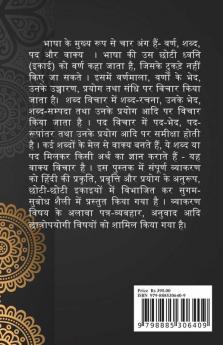 भाषा के मुख्य रूप से चार अंग हैं- वर्ण, शब्द,
पद और वाक्य। भाषा की उस छोटी ध्वनि
(इकाई) को वर्ण कहा जाता है, जिसके टुकडे नहीं
किए जा सकते। इसमें वर्णमाला, वर्णों के भेद,
उनके उच्चारण, प्रयोग तथा संधि पर विचार किया
जाता है। शब्द विचार में शब्द-रचना, उनके भेद,
शब्द-सम्पदा तथा उनके प्रयोग आदि पर विचार
किया जाता है। पद विचार में पद-भेद, पद-
रूपांतर तथा उनके प्रयोग आदि पर समीक्षा होती
है। कई शब्दों के मेल से वाक्य बनते हैं, ये शब्द या
पद मिलकर किसी अर्थ का ज्ञान कराते हैं - यह
वाक्य विचार है। इस पुस्तक में संपूर्ण व्याकरण
को हिंदी की प्रकृति, प्रवृत्ति और प्रयोग के अनुरूप,
छोटी-छोटी इकाइयों में विभाजित कर सुगम-
सुबोध शैली में प्रस्तुत किया गया है। व्याकरण
विषय के अलावा पत्र-व्यवहार, अनुवाद आदि
छात्रोपयोगी विषयों को शामिल किया गया है।
Price Rs 399.00
ISBN
979-888530640-9
9798885306409